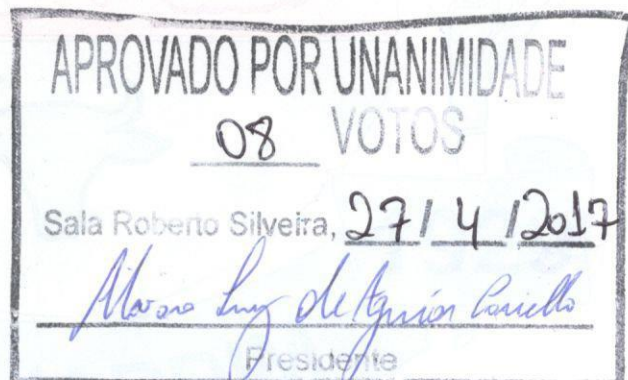 APROVADO POR UNANIMIDADE
08 VOTOS
Sala Roberto Silveira, 27/4/2017
de Aguiar
Presidente